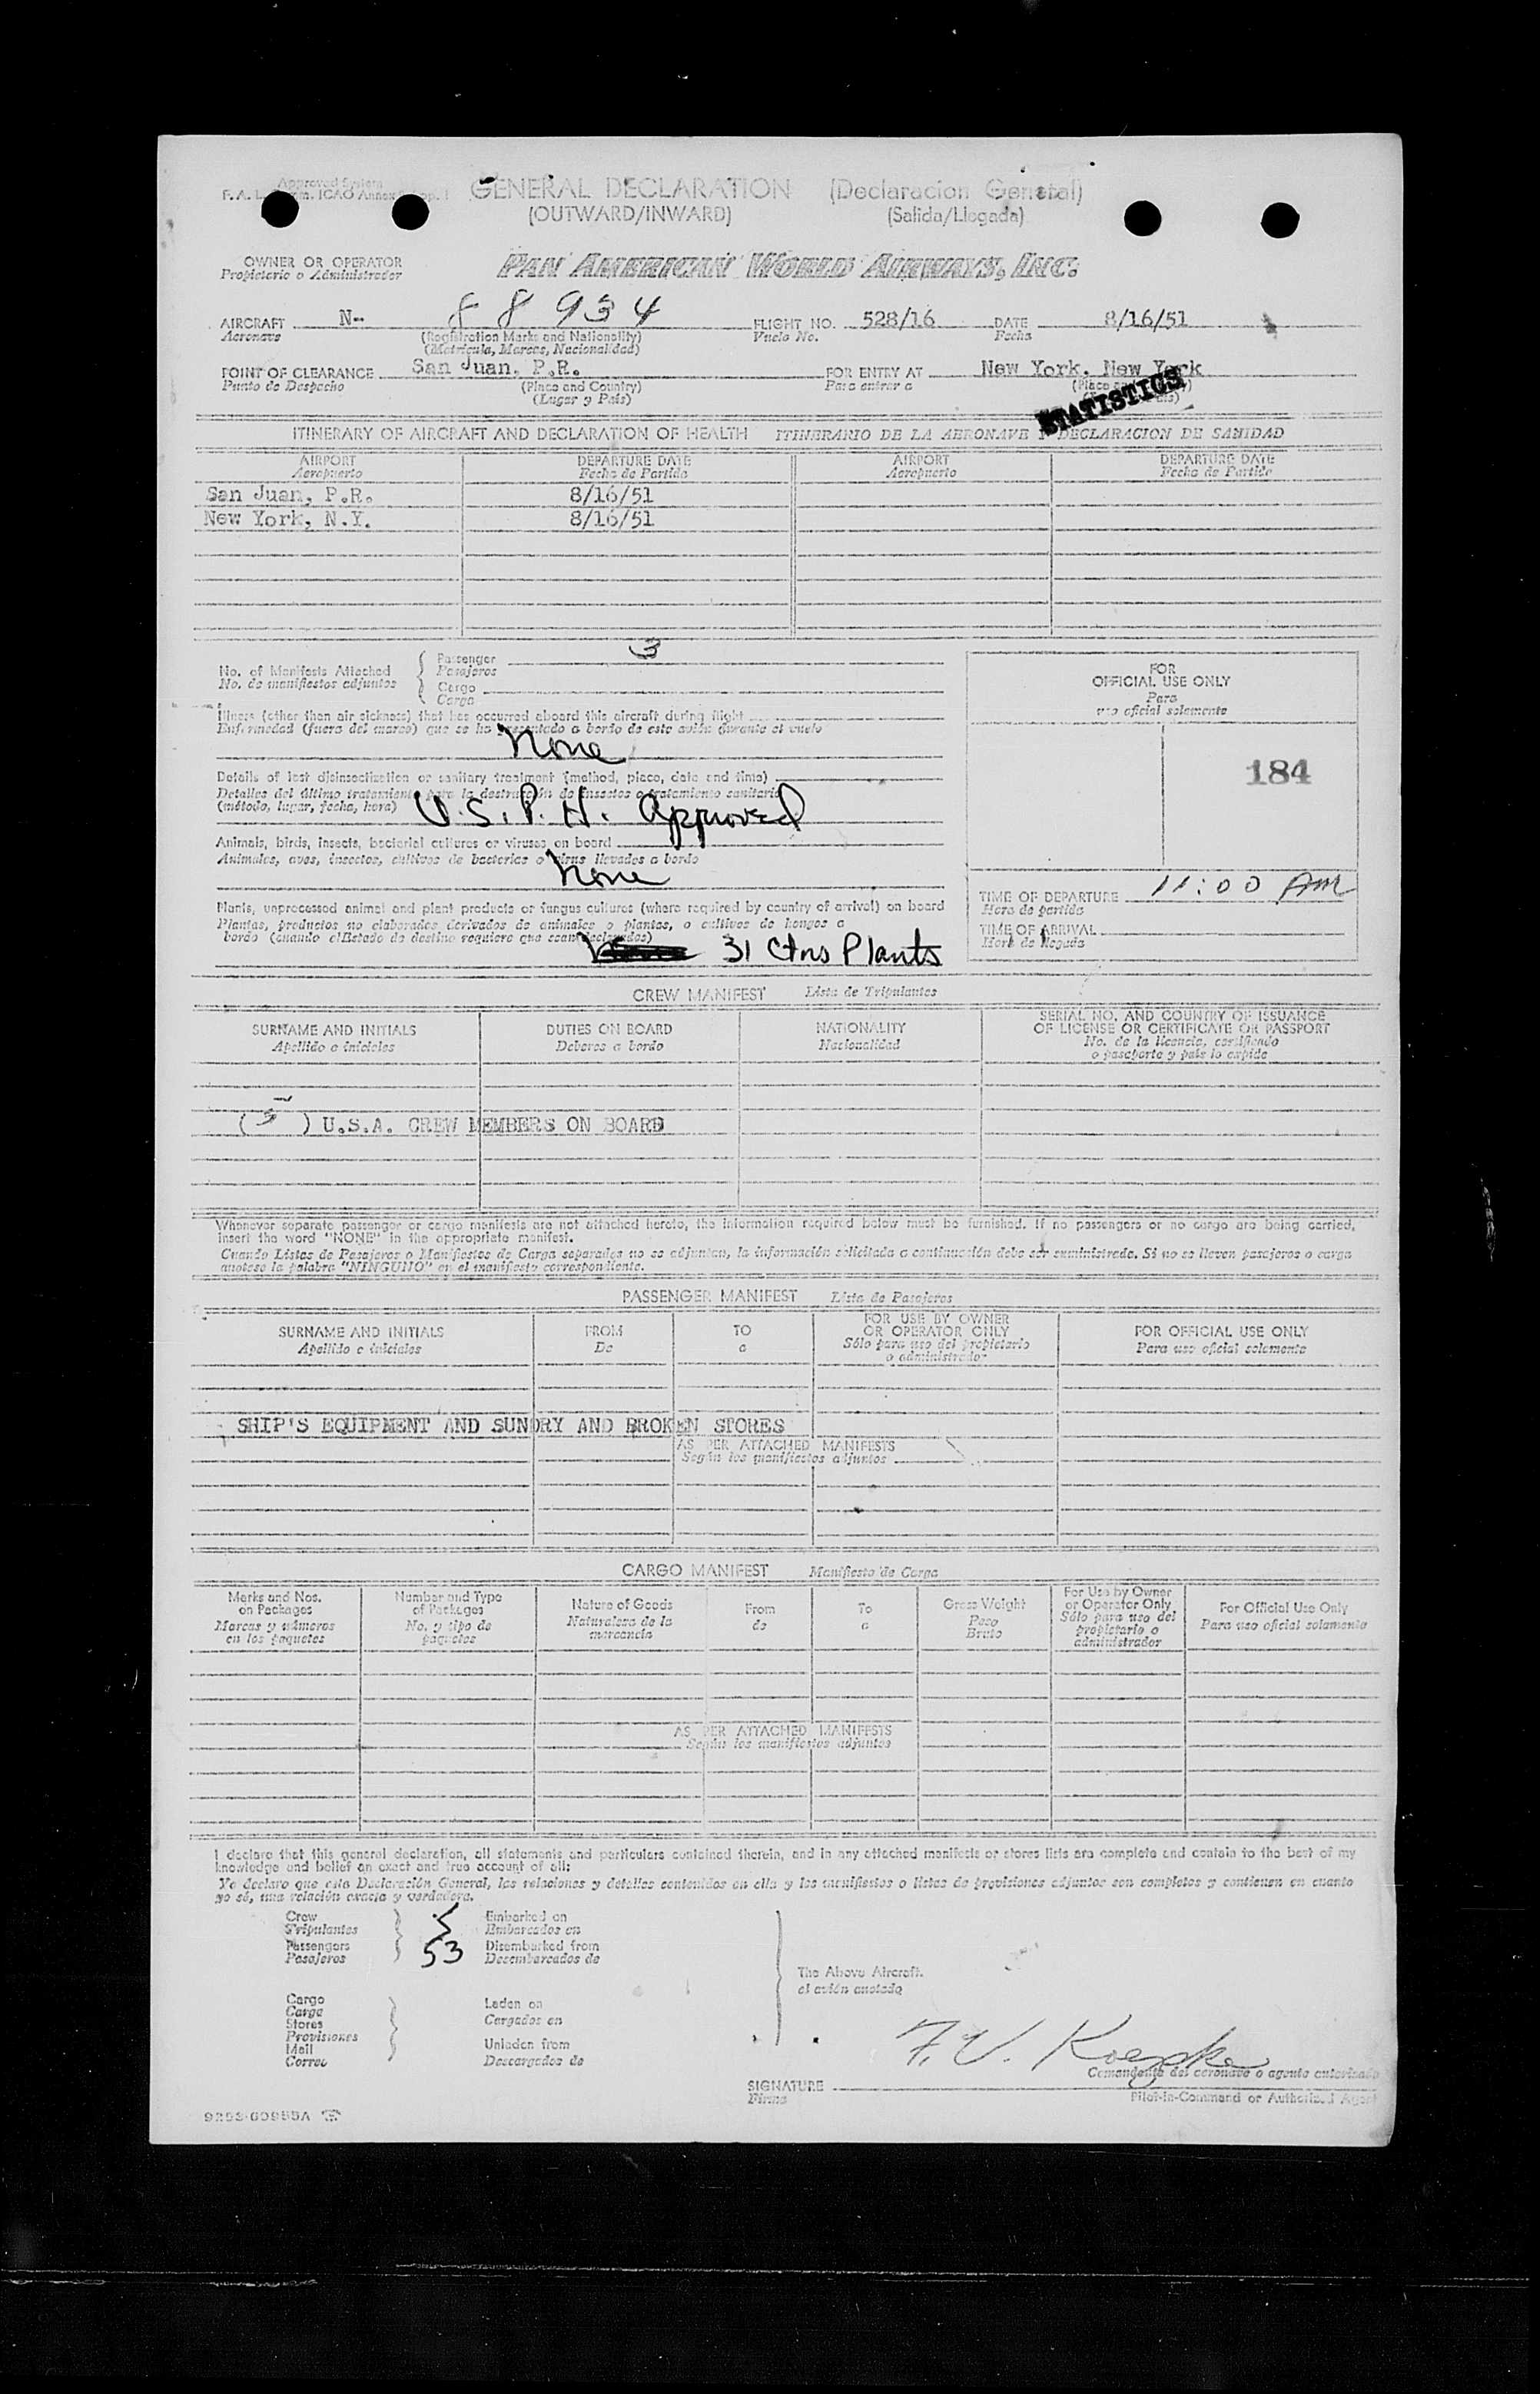 Approved System
GENERAL DECLARATION (Declaracion General)
(OUTWARD/INWARD) (Salida/Llegada)
OWNER OR OPERATOR
Propietario o Administrador
PAN AMERICAN WORLD AIRWAYS, INC.
AIRCRAFT N-- 88934 FLIGHT NO. 528/16 DATE 8/16/51
Aeronave (Registration Marks and Nationality) Vuelo No. Fecha
(Matricula, Marcas, Nacionalidad)
POINT OF CLEARANCE San Juan, P.R. FOR ENTRY AT New York, New York
Punto de Despacho (Place and Country) Para entrar a
(Lugar y Pais)
STATISTICS
ITINERARY OF AIRCRAFT AND DECLARATION OF HEALTH ITINERARIO DE LA AERONAVE Y DECLARACION DE SANIDAD
AIRPORT DEPARTURE DATE AIRPORT DEPARTURE DATE
Aeropuerto Fecha de Partida Aeropuerto Fecha de Partida
San Juan, P.R. 8/16/51
New York, N.Y. 8/16/51
No. of Manifests Attached Passenger 3
No. de manifiestos adjuntos Pasajeros
Cargo
Carga
FOR
OFFICIAL USE ONLY
Para
uso oficial solamente
184
Illness (other than air sickness) that has occurred aboard this aircraft during flight
Enfermedad (fuera del mareo) que se ha presentado a bordo de este avión durante el vuelo
None
Details of last disinsectization or sanitary treatment (method, place, date and time)
Detalles del último tratamiento para la destrucción de insectos o tratamiento sanitario
(método, lugar, fecha, hora) U.S.P.H. Approved
Animals, birds, insects, bacterial cultures or viruses on board
Animales, aves, insectos, cultivos de bacterias o virus llevados a bordo
None
Plants, unprocessed animal and plant products or fungus cultures (where required by country of arrival) on board
Plantas, productos no elaborados derivados de animales o plantas, o cultivos de hongos a
bordo (cuando el Estado de destino requiere que sean declarados)
31 Ctns Plants
TIME OF DEPARTURE 11:00 AM
Hora de partida
TIME OF ARRIVAL
Hora de llegada
CREW MANIFEST Lista de Tripulantes
SURNAME AND INITIALS DUTIES ON BOARD NATIONALITY SERIAL NO. AND COUNTRY OF ISSUANCE
OF LICENSE OR CERTIFICATE OR PASSPORT
Apellido e iniciales Deberes a bordo Nacionalidad No. de la licencia, certificado
o pasaporte y pais lo expide
( 5 ) U.S.A. CREW MEMBERS ON BOARD
Whenever separate passenger or cargo manifests are not attached hereto, the information required below must be furnished. If no passengers or no cargo are being carried,
insert the word "NONE" in the appropriate manifest.
Cuando Listas de Pasajeros o Manifiestos de Carga separados no se adjuntan, la información solicitada a continuación debe ser suministrada. Si no se llevan pasajeros o carga
anotese la palabra "NINGUNO" en el manifiesto correspondiente.
PASSENGER MANIFEST Lista de Pasajeros
SURNAME AND INITIALS FROM TO FOR USE BY OWNER
OR OPERATOR ONLY FOR OFFICIAL USE ONLY
Apellido e iniciales De a Sólo para uso del propietario
o administrador Para uso oficial solamente
SHIP'S EQUIPMENT AND SUNDRY AND BROKEN STORES
AS PER ATTACHED MANIFESTS
Según los manifiestos adjuntos
CARGO MANIFEST Manifiesto de Carga
Marks and Nos.
on Packages
Marcas y números
en los paquetes
Number and Type
of Packages
No. y tipo de
paquetes
Nature of Goods
Naturaleza de la
mercancia
From
de
To
a
Gross Weight
Peso
Bruto
For Use by Owner
or Operator Only
Sólo para uso del
propietario o
administrador
For Official Use Only
Para uso oficial solamente
AS PER ATTACHED MANIFESTS
Según los manifiestos adjuntos
I declare that this general declaration, all statements and particulars contained therein, and in any attached manifests or stores lists are complete and contain to the best of my
knowledge and belief an exact and true account of all:
Yo declaro que esta Declaración General, las relaciones y detalles contenidos en ella y los manifiestos o listas de provisiones adjuntos son completos y contienen en cuanto
yo sé, una relación exacta y verdadera.
Crew 5 Embarked on
Tripulantes Embarcados en
Passengers 53 Disembarked from
Pasajeros Desembarcados de
The Above Aircraft.
el avión anotado
Cargo
Carga
Stores
Provisiones
Mail
Correo
Laden on
Cargados en
Unladen from
Descargados de
F.V. Koepke
Comandante del aeronave o agente autorizado
SIGNATURE
Firma
Pilot-in-Command or Authorized Agent